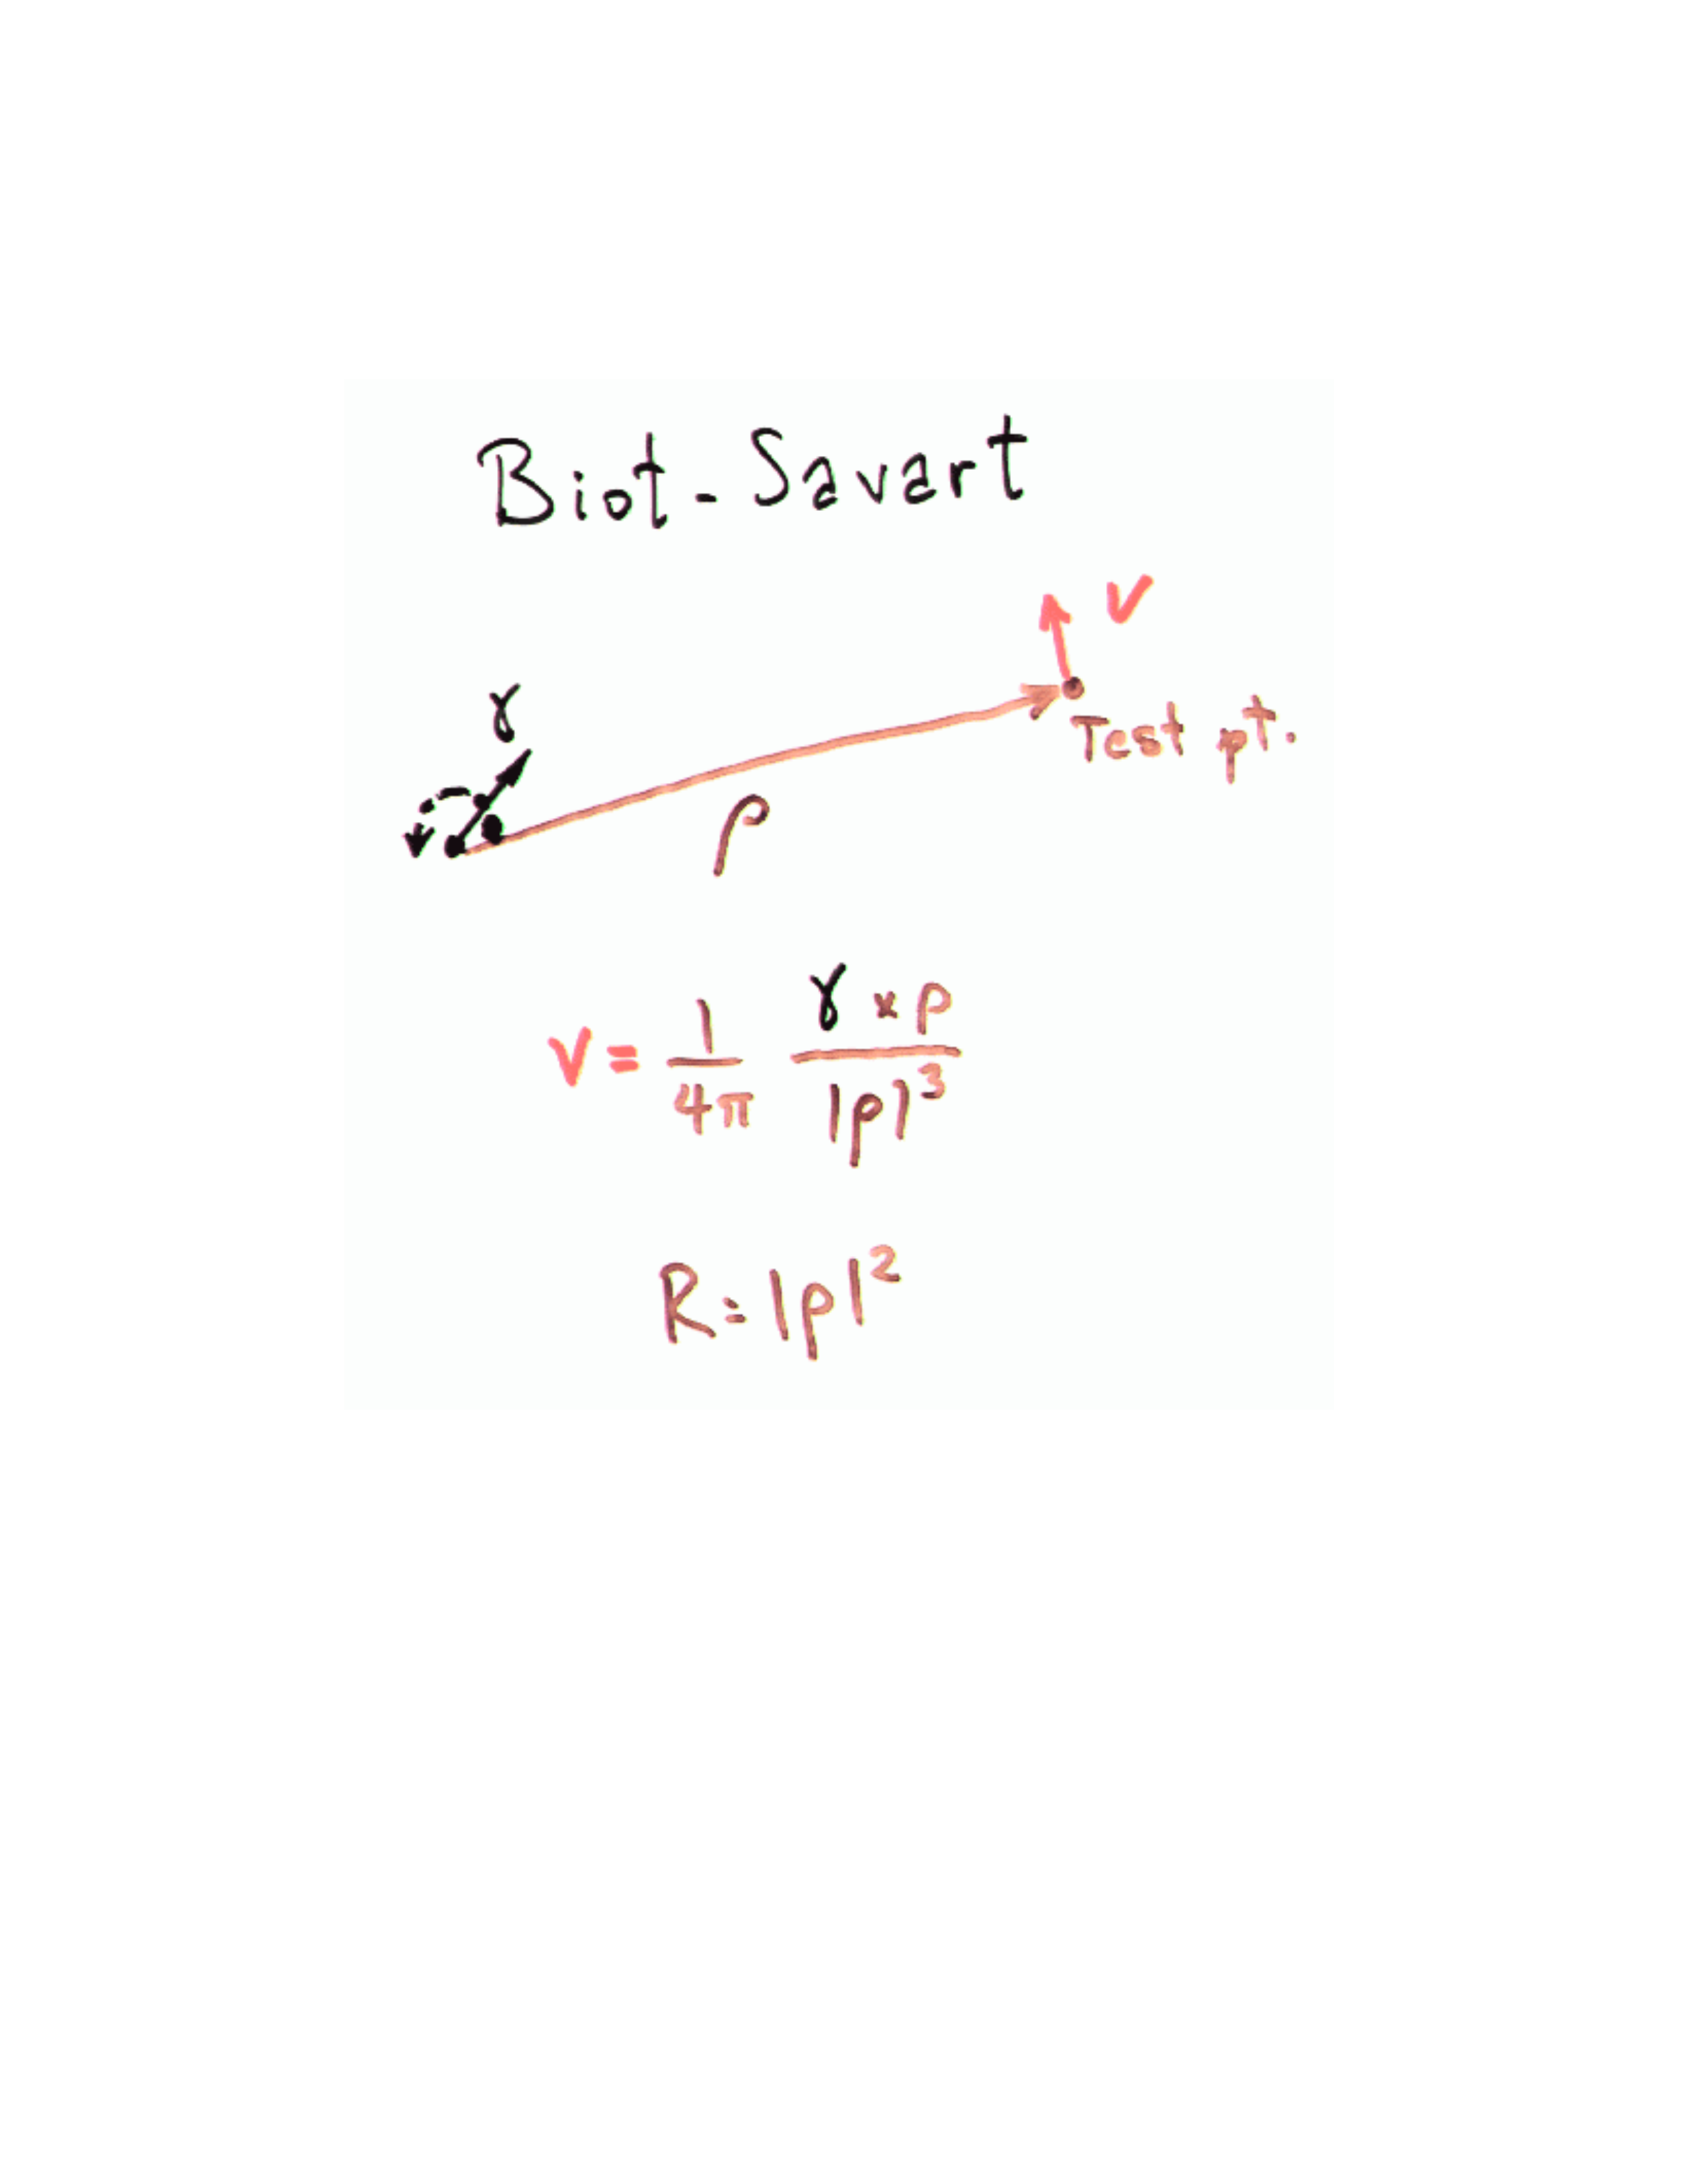 Biot-Savart
V
γ
Test pt.
ρ
V = 1/4π γ × ρ / |ρ|³
R = |ρ|²